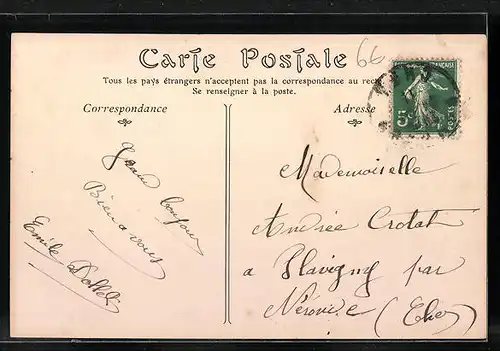 Carte Postale
66
Tous les pays étrangers n'acceptent pas la correspondance au recto
Se renseigner à la poste.
Correspondance
Adresse
5c
POSTES
Grand bonjour
Bien à vous
Emile
Mademoiselle
Andrée Crotat
a Flavigny par
Nérondes (Cher)